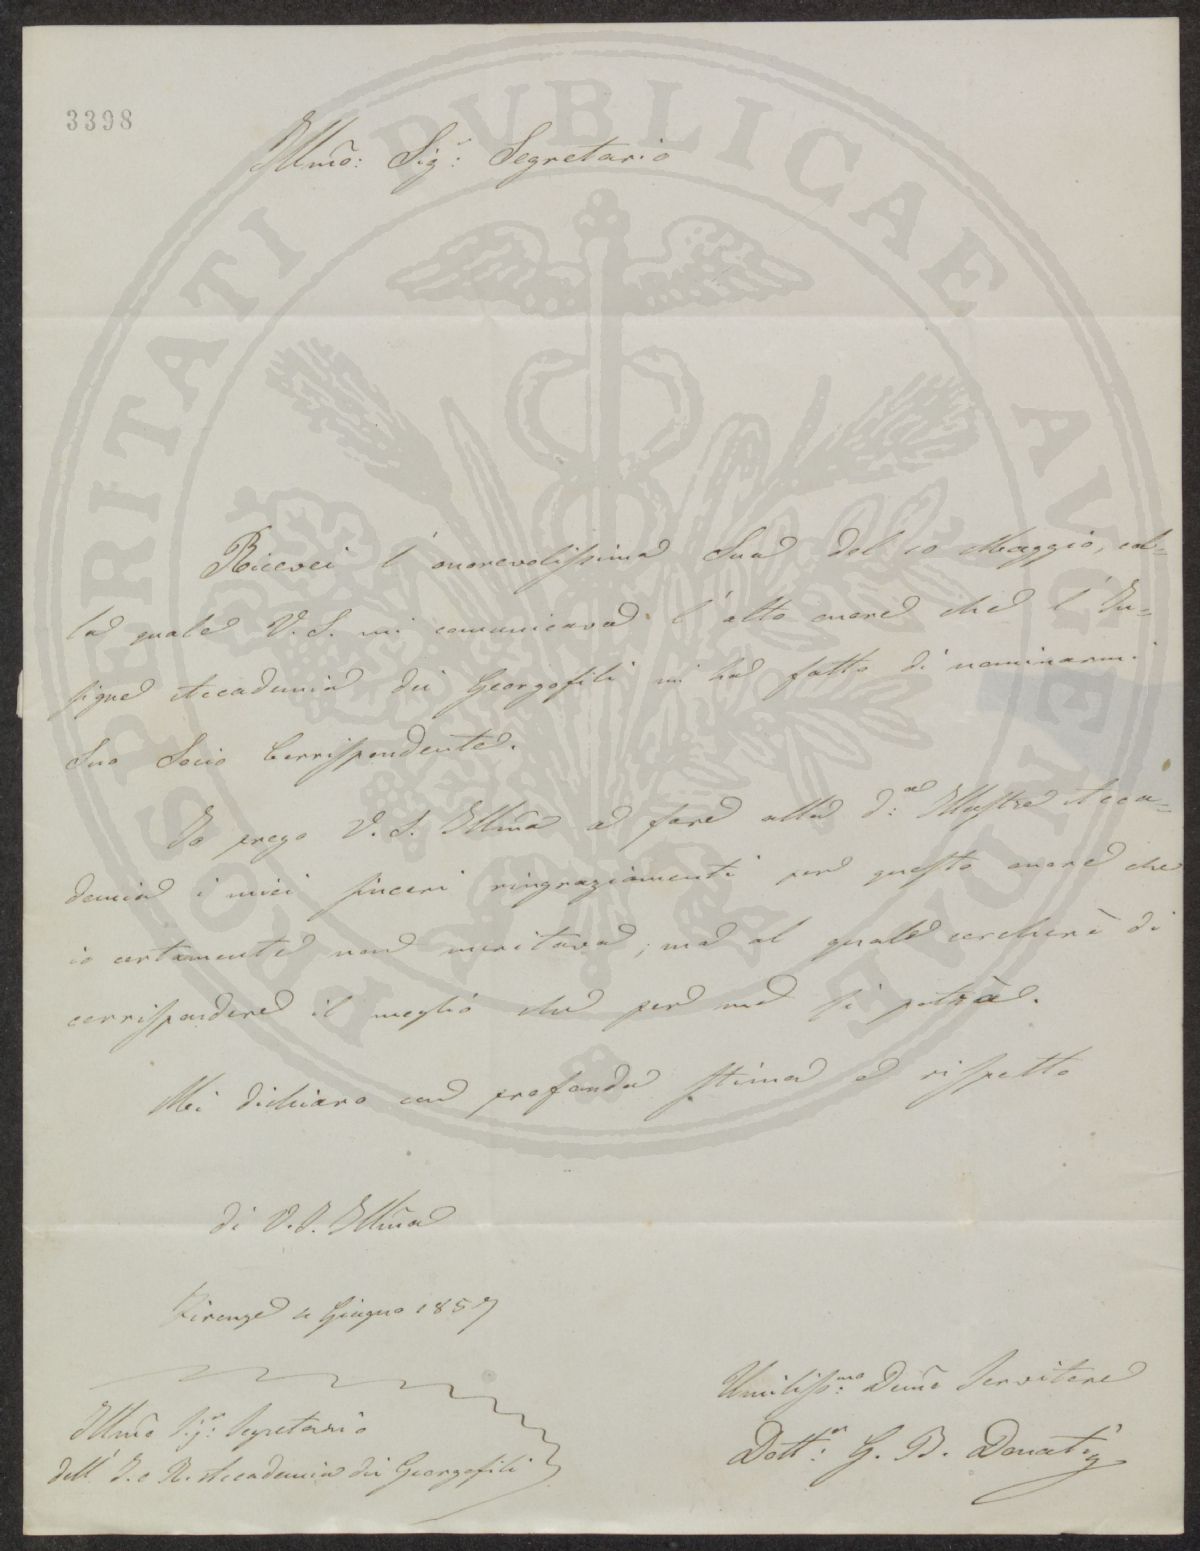 3398
Illmo: Sigr: Segretario
Ricevei l' onorevolissima Sua del 10 Maggio, col=
la quale V. S. mi comunicava l' alto onore che l' In=
signe Accademia dei Georgofili mi ha fatto di nominarmi
suo Socio Corrispondente.
Io prego V. S. Illma a fare alla d:a Illustre Acca=
demia i miei sinceri ringraziamenti per questo onore che
io certamente non meritava; ma al quale cercherò di
corrispondere il meglio che per me si potrà.
Mi dichiaro con profonda stima e rispetto
di V. S. Illma
Firenze 4 Giugno 1857
Umiliss:mo Devmo Servitore
Dott:r G. B. Donati
Illmo Sigr: Segretario
dell' I. e R. Accademia dei Georgofili
PROSPERITATI PUBLICAE AUGENDAE